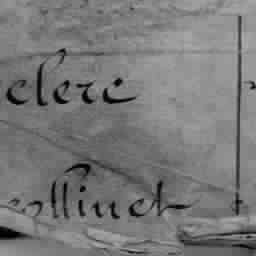 clerc
collinet